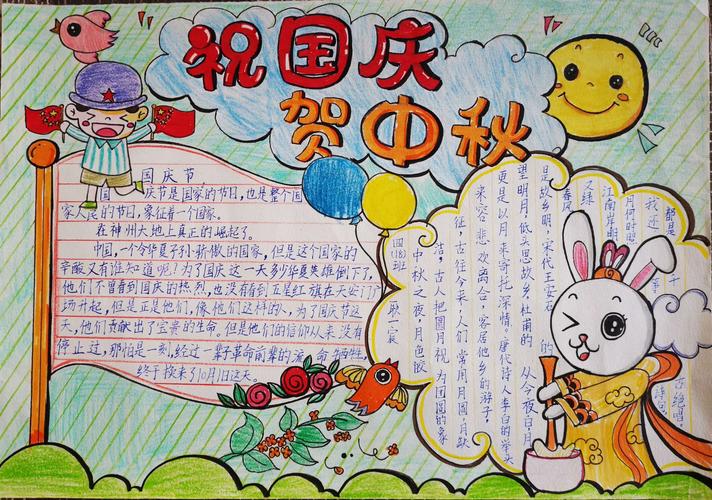 祝国庆
贺中秋
国庆节,
国庆节是国家的节日,也是整个国
家人民的节日,象征着一个国家。
在神州大地上真正的崛起了。
中国,一个令华夏子孙骄傲的国家,但是这个国家的
辛酸又有谁知道呢?为了国庆这一天多少华夏英雄倒下了,
他们不曾看到国庆的热烈,也没有看到五星红旗在天安门广
场升起,但是正是他们,像他们这样的人,为了国庆节这
天,他们贡献出了宝贵的生命,但是他们的信仰从来没有
停止过,哪怕是一刻,经过一辈子革命前辈的流 牺牲,
终于换来了10月1日这天。
四(18)班
耿一宸
中秋之夜,月色皎
洁,古人把圆月视为团圆的象
征,古往今来,人们常用月圆,月缺
来容悲欢离合,客居他乡的游子,
更是以月来寄托深情。唐代诗人李白的举头
望明月,低头思故乡,杜甫的
从今夜白,月
是故乡明,宋代王安石的
春风
又绿
江南岸明
月何时照
我还
都是千
古绝唱
诗句